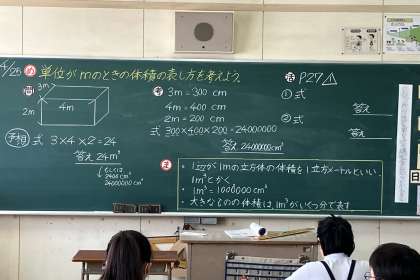 4/25 め 単位がmのときの体積の表し方を考えよう。
問
3m
4m
2m
予想 式 3×4×2=24
答え 24m³
もしくは
2400cm³
24000000cm³
考 3m=300cm
4m=400cm
2m=200cm
式 300×400×200=24000000
答え 24000000cm³
ま
・1辺が1mの立方体の体積を1立方メートルといい、
1m³とかく
・1m³=1000000cm³
・大きなものの体積は、1m³がいくつ分で表す。
活 P27
① 式
答え
② 式
答え
日